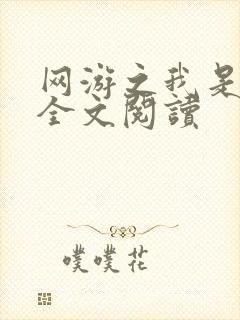 网游之我是
全文閱讀
噗噗花